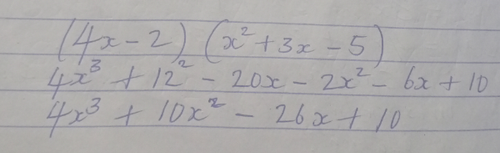 (4x-2) (x²+3x-5)
4x³ + 12² - 20x - 2x² - 6x + 10
4x³ + 10x² - 26x + 10